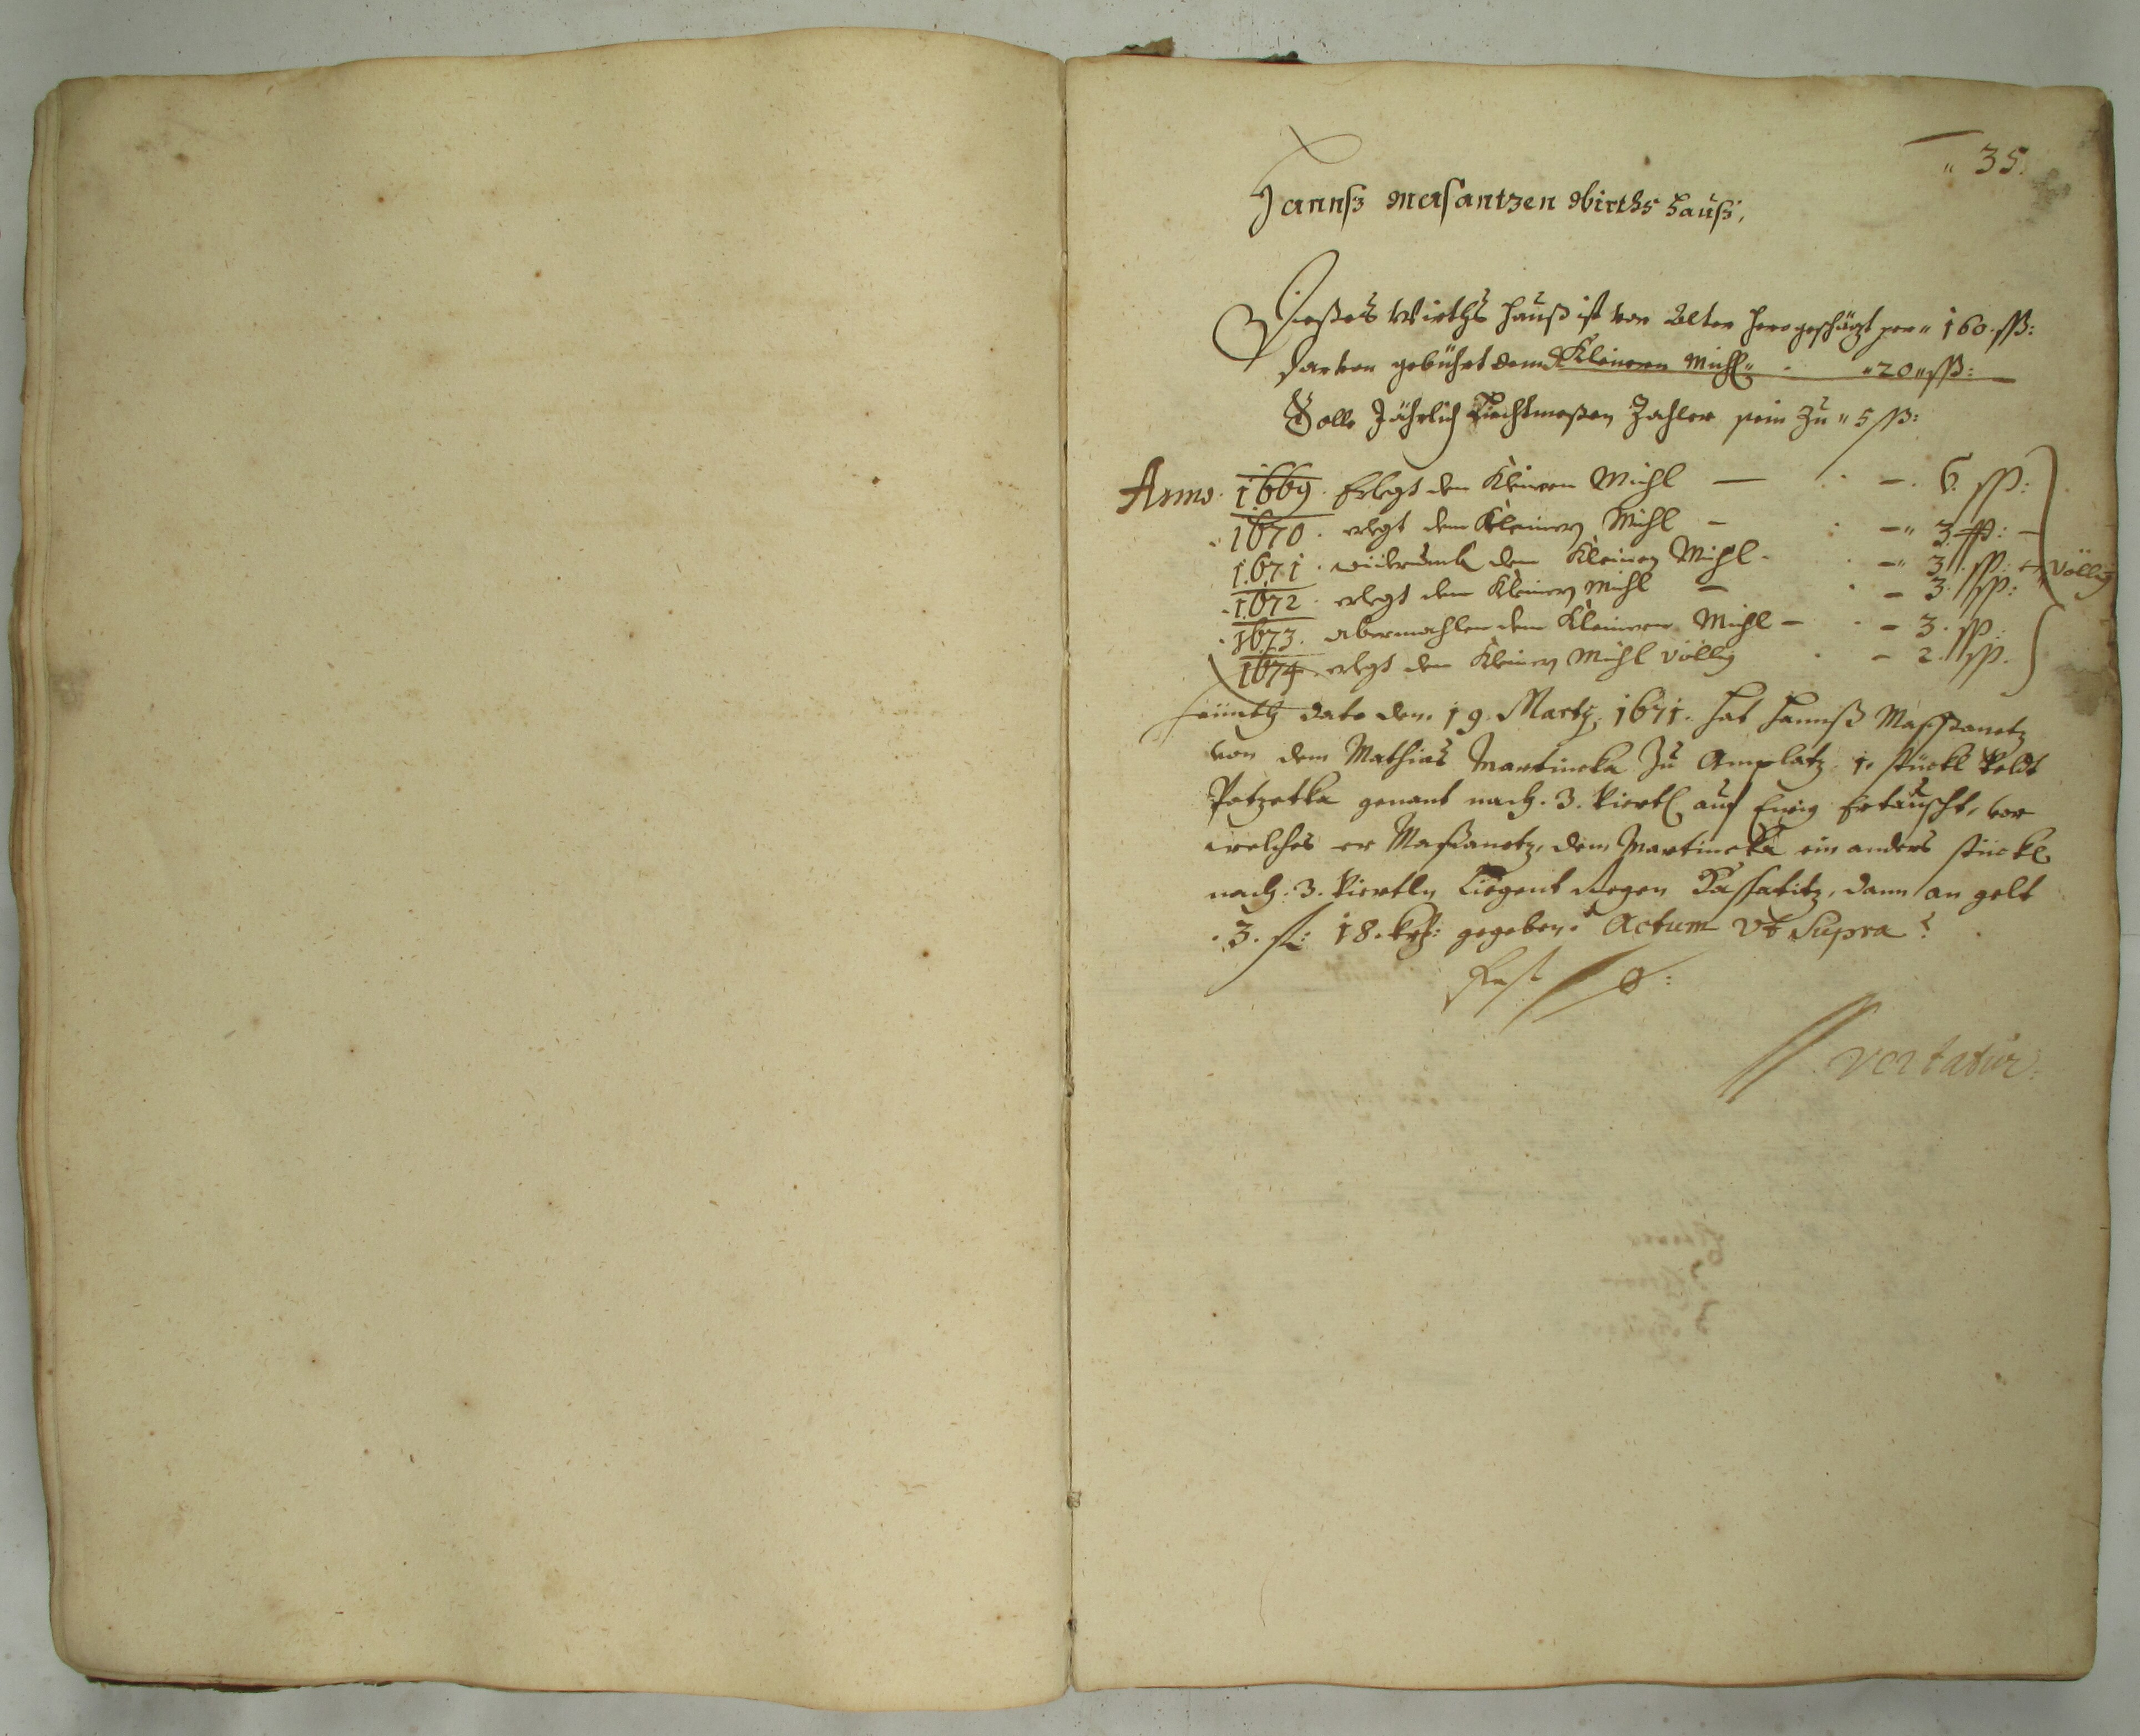 " 35.
Hannß Masantzen Wirthshauß,
Dießes Wirthß Hauß ist von Alter hero geschäzt per " 160 ßß:
darvon gebührt dem Kleinen Michl " - " 20 " ßß:
Solle Jährlich Liechtmeßen Zahler sein zu " 5 ßß:
Anno 1669. Erlegt dem Kleinen Michl — . —. 6. ßß:
1670. erlegt dem Kleinen Michl — . —" 3. ßß: —
1671. widerumb dem Kleinen Michl - . —" 3. ßß: völlig
1672. erlegt dem Kleinen Michl — . — 3. ßß:
1673. abermahlen dem Kleinen Michl — . — 3. ßß:
1674. erlegt dem Kleinen Michl völlig . — 2. ßß.
Heünth dato den 19. Martÿ. 1671. hat Hannß Massanetz
von dem Mathias Martincka zu Amplatz. 1. stückl Feldt
Potzatka genant nach. 3. Viertl auf Ewig Ertauscht, vor
welches er Massanetz, dem Martincka ein anders stückl
nach. 3. Viertln Liegent gegen Kassatitz, dann an gelt
. 3. fl: 18. kr: gegeben. Actum Vt Supra.
Rest / 0:
// vertatur.